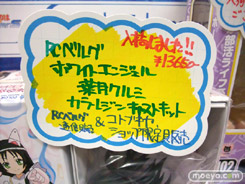 入荷しました!!
¥13650-
RCベルグ
ホワイトエンジェル
葉月クルミ
カラーレジンキャストキット
RCベルグ
通信販売
& コトブキヤ
ショップ限定販売
部活ライフ
02
moeyo.com